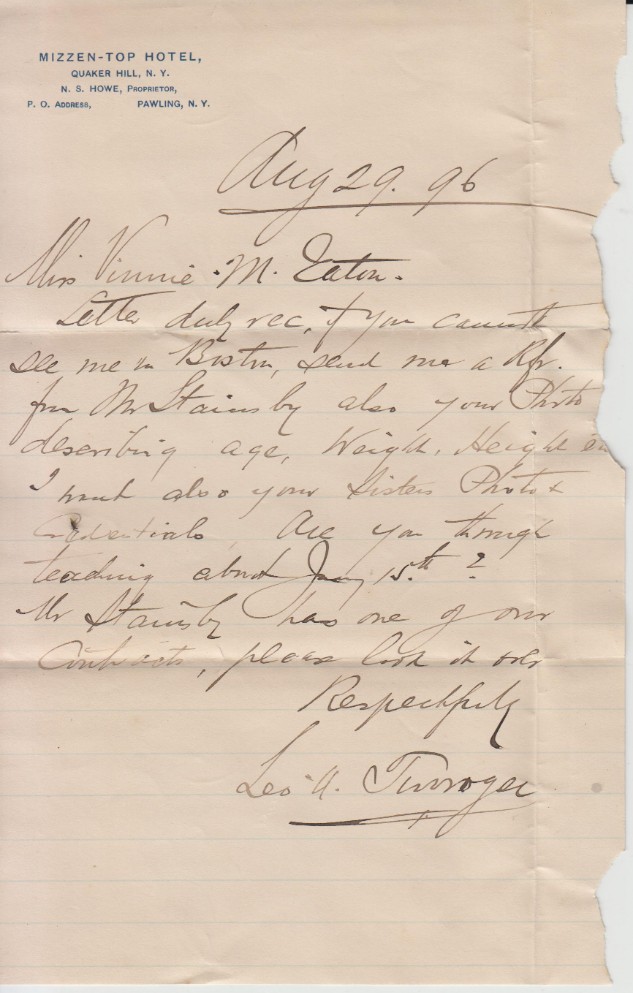 MIZZEN-TOP HOTEL,
QUAKER HILL, N. Y.
N. S. HOWE, PROPRIETOR,
P. O. ADDRESS, PAWLING, N. Y.
Aug 29. 96
Miss Vinnie M. Eaton.
Letter duly rec, if you cannot
see me in Boston, send me a Rfr.
from Mr Stainsby also your Photo
describing age, Weight, Height
I want also your Sisters Photo &
Credentials, Are you through
teaching about Jany 15th ?
Mr Stainsby has one of our
Contracts, please look it over
Respectfully
Leo A.